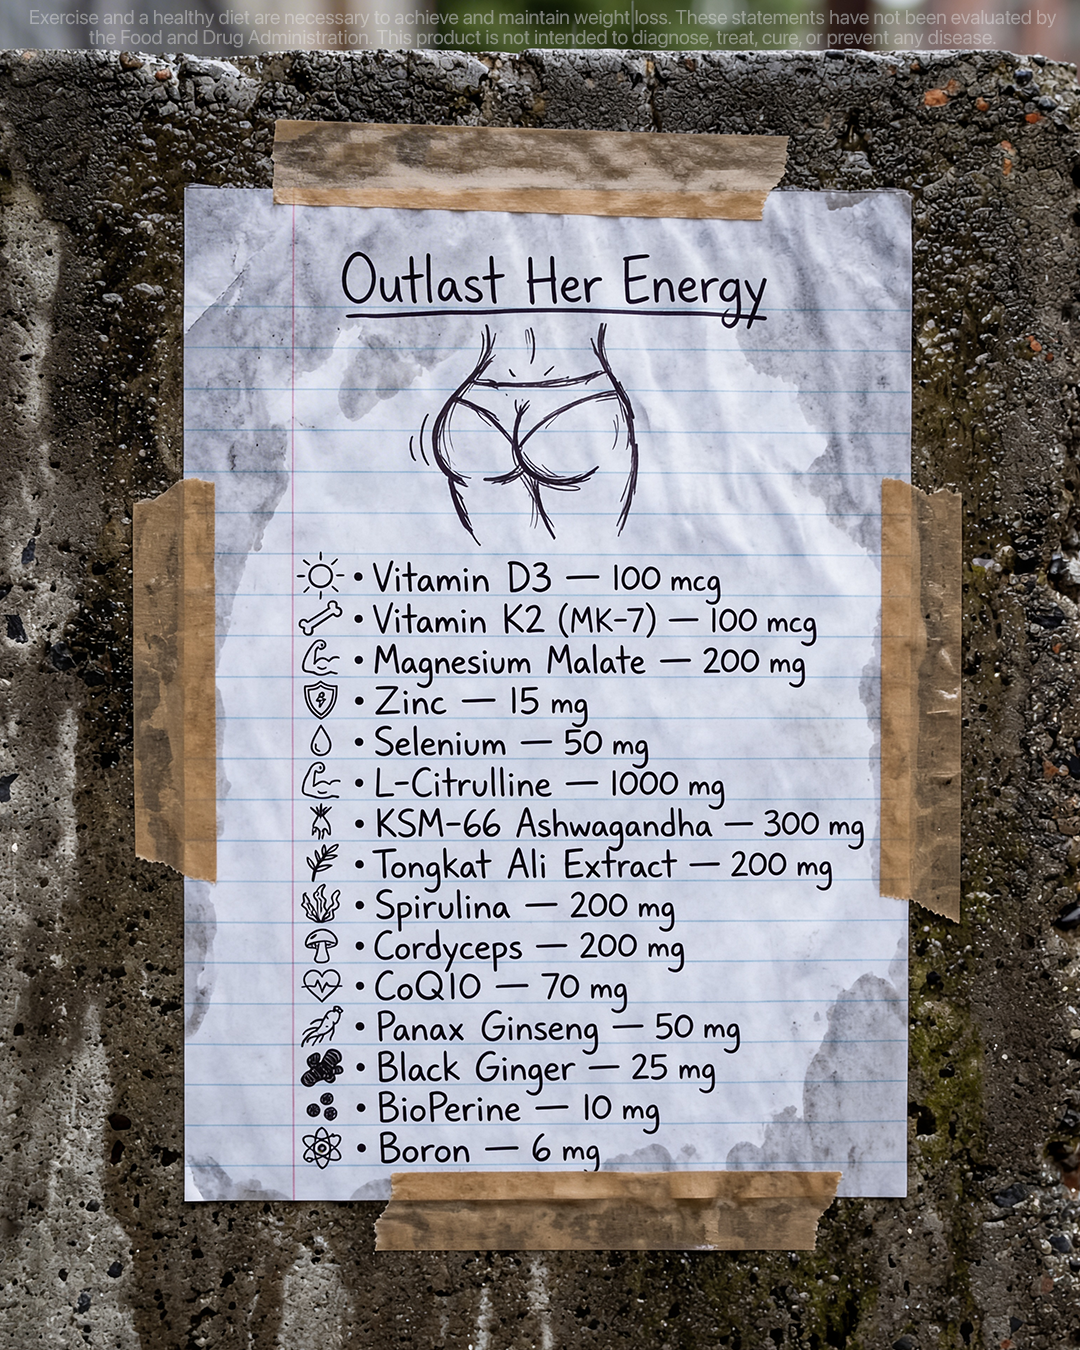 Exercise and a healthy diet are necessary to achieve and maintain weight loss. These statements have not been evaluated by
the Food and Drug Administration. This product is not intended to diagnose, treat, cure, or prevent any disease.
Outlast Her Energy
• Vitamin D3 — 100 mcg
• Vitamin K2 (MK-7) — 100 mcg
• Magnesium Malate — 200 mg
• Zinc — 15 mg
• Selenium — 50 mg
• L-Citrulline — 1000 mg
• KSM-66 Ashwagandha — 300 mg
• Tongkat Ali Extract — 200 mg
• Spirulina — 200 mg
• Cordyceps — 200 mg
• CoQ10 — 70 mg
• Panax Ginseng — 50 mg
• Black Ginger — 25 mg
• BioPerine — 10 mg
• Boron — 6 mg